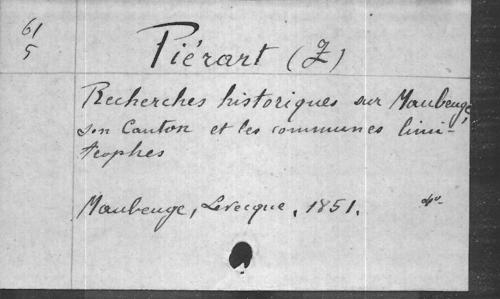 61
5
Piérart (Z)
Recherches historiques sur Maubeuge,
son Canton et les communes limi-
trophes
Maubeuge, Levecque, 1851. 4°